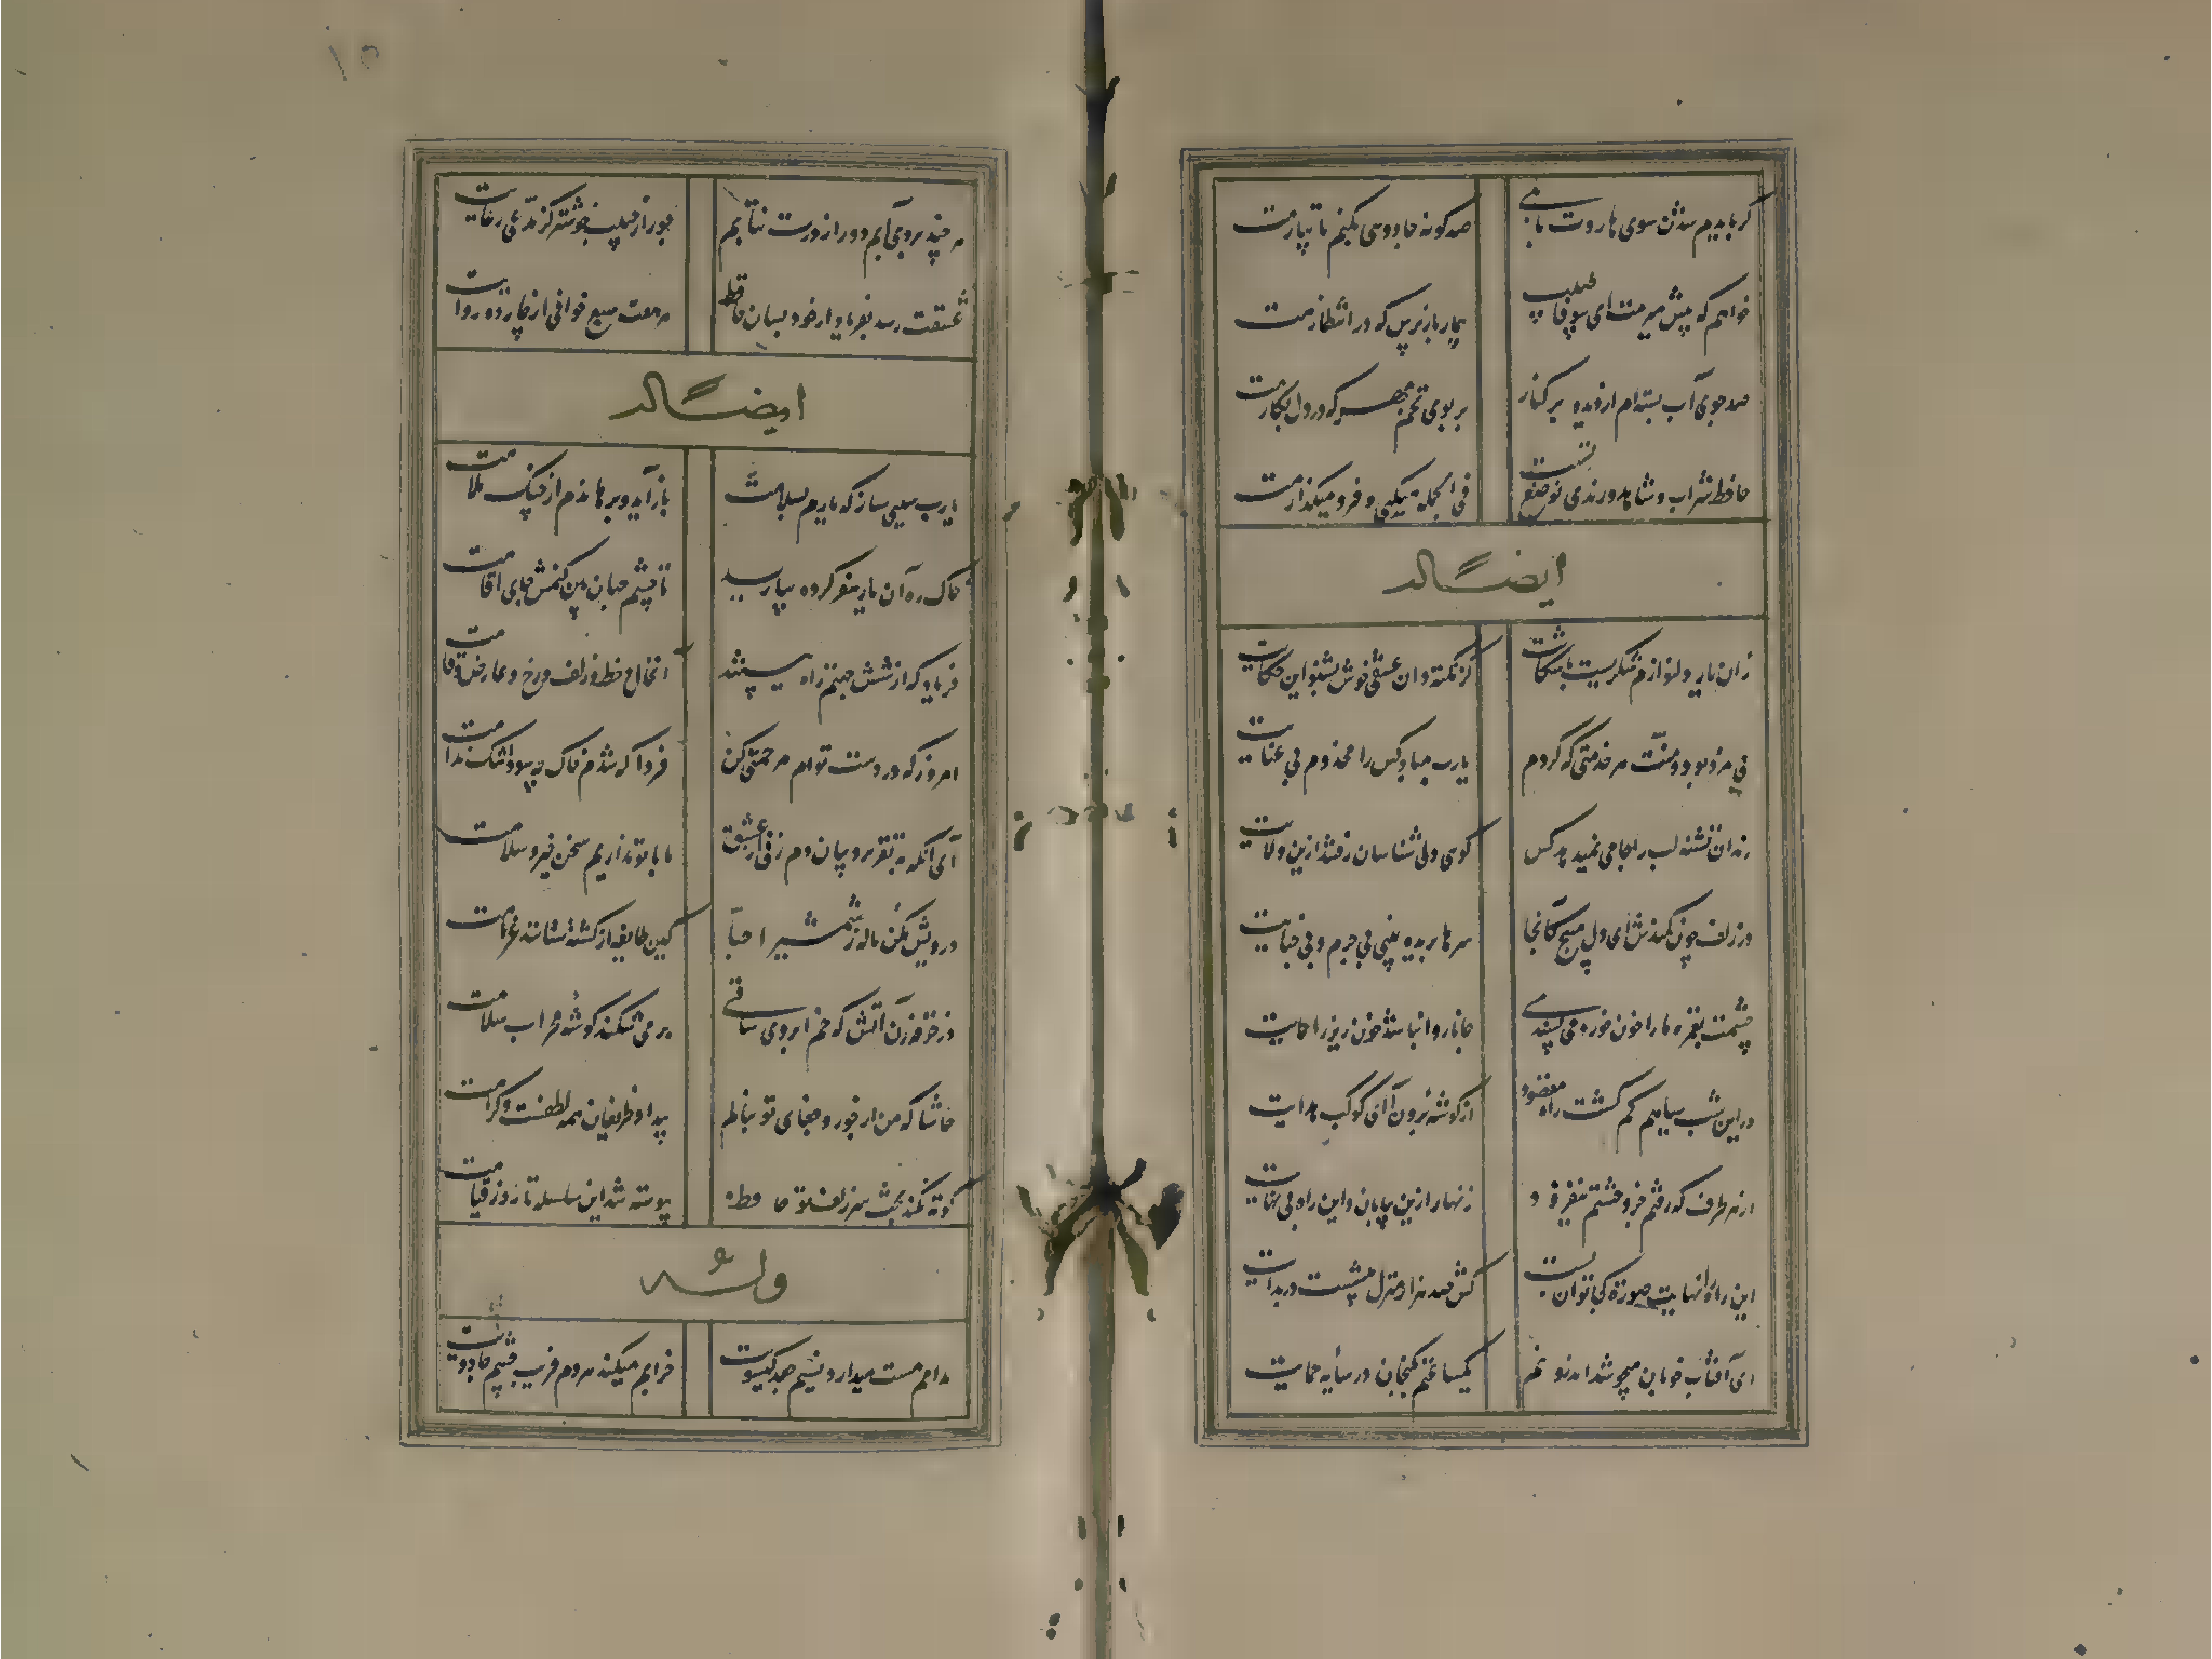 گر بایدم شدن سوی هاروت بابلی
صد گونه جادوسی بکنم تا بیارمت
خواهم که پیش میرمت ای بیوفا طبیب
بیمار باز پرس که در انتظارمت
صد جوی آب بسته‌ام از دیده بر کنار
بر بوی تخم مهر که در دل بکارمت
حافظ شراب و شاهد و رندی نه وضع تست
فی الجمله میکنی و فرو میگذارمت
ایضاً له
زان یار دلنوازم شکریست با شکایت
گر نکته دان عشقی خوش بشنو این حکایت
بی مزد بود و منت هر خدمتی که کردم
یارب مباد کس را مخدوم بی عنایت
رندان تشنه لب را جامی نمیدهد کس
گویی ولی شناسان رفتند ازین ولایت
در زلف چون کمندش ای دل مپیچ کانجا
سرها بریده بینی بی جرم و بی جنایت
چشمت بغمزه ما را خون خورد و می پسندی
جانا روا نباشد خون ریز را حمایت
در این شب سیاهم گم گشت راه مقصود
از گوشهٔ برون آ ای کوکب هدایت
از هر طرف که رفتم جز وحشتم نیفزود
زنهار ازین بیابان واین راه بی نهایت
این راه را نهایت صورت کجا توان بست
کش صد هزار منزل بیشست در بدایت
ای آفتاب خوبان میجوشد اندرونم
یکساعتم بگنجان در سایه حمایت
هر چند بردی آبم دور از درت نتابم
جور از حبیب خوشتر کز مدعی رعایت
عشقت رسد بفریاد ار خود بسان حافظ
ایضاً له
یارب سببی ساز که یارم بسلامت
باز آید و برهاندم از چنگ ملامت
خاک ره آن یار سفر کرده بیارید
تا چشم جهان بین کنمش جای اقامت
فریاد که از شش جهتم راه ببستند
آن خال و خط و زلف و رخ و عارض و قامت
امروز که در دست توام مرحمتی کن
فردا که شدم خاک چه سود اشک ندامت
ای آنکه به تقریر و بیان دم زنی از عشق
ما با تو نداریم سخن خیر و سلامت
درویش مکن ناله ز شمشیر احبا
کین طایفه از کشته ستانند غرامت
در خرقه زن آتش که خم ابروی ساقی
بر می شکند گوشهٔ محراب سلامت
حاشا که من از جور و جفای تو بنالم
بیداد ظریفان همه لطفست و کرامت
کوته نکند بحث سر زلف تو حافظ
پیوسته شد این سلسله تا روز قیامت
وله
مدامم مست میدارد نسیم جعد گیسویت
خرابم میکند هر دم فریب چشم جادویت